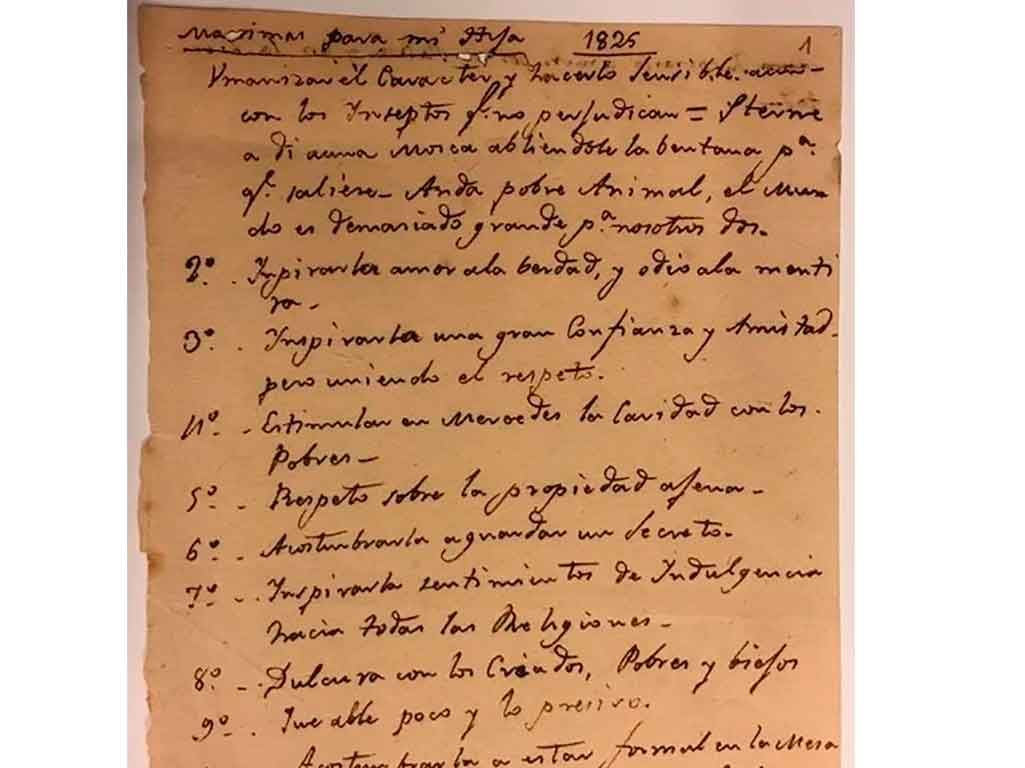 Maximas para mi Hija 1825 1
Vmanizar él Caracter y hacerlo sensible. aun
con los Inseptos q.e no perjudican = Sterne
a di auna Mosca abliendole la bentana p.a
q.e saliese - Anda pobre Animal, el Mun-
do es demasiado grande p.a nosotros dos.
2º. . Inpirarla amor ala berdad, y odio ala menti
ra -
3º. . Inspirarla una gran Confianza y Amistad
pero uniendo el respeto.
4º. - Estimular en Mercedes la Caridad con los
Pobres -
5º. - Respeto sobre la propiedad ajena -
6º. - Acostunbrarla aguardar un Secreto.
7º. - Inspirarla sentimientos de Indulgencia
hacia todas las Religiones -
8º. - Dulsura con los Criados, Pobres y biejos
9º. - Que able poco y lo presiso.
Acostunbrarla a estar formal en la Mesa